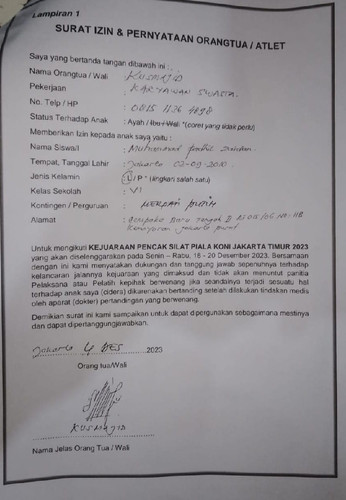 Lampiran 1
SURAT IZIN & PERNYATAAN ORANGTUA / ATLET
Saya yang bertanda tangan dibawah ini :
Nama Orangtua / Wali : KUSMAJID
Pekerjaan : KARYAWAN SWASTA
No. Telp / HP :
Status Terhadap Anak : Ayah / Ibu / Wali *(coret yang tidak perlu)
Memberikan Izin kepada anak saya yaitu :
Nama Siswa/i : Muhammad
Tempat, Tanggal Lahir : Jakarta 02-09-2010
Jenis Kelamin : L / P * (lingkari salah satu)
Kelas Sekolah : VI
Kontingen / Perguruan : MERPATI PUTIH
Alamat :
Kemayoran Jakarta Pusat
Untuk mengikuti KEJUARAAN PENCAK SILAT PIALA KONI JAKARTA TIMUR 2023
yang akan diselenggarakan pada Senin – Rabu, 18 - 20 Desember 2023. Bersamaan
dengan ini kami menyatakan dukungan dan tanggung jawab sepenuhnya terhadap
kelancaran jalannya kejuaraan yang dimaksud dan tidak akan menuntut panitia
Pelaksana atau Pelatih kepihak berwenang jika seandainya terjadi sesuatu hal
terhadap anak saya (cidera) dikarenakan bertanding setelah dilakukan tindakan medis
oleh aparat (dokter) pertandingan yang berwenang.
Demikian surat ini kami sampaikan untuk dapat dipergunakan sebagaimana mestinya
dan dapat dipertanggungjawabkan.
Jakarta 4 DES 2023
Orang tua/Wali
KUSMAJID
Nama Jelas Orang Tua / Wali